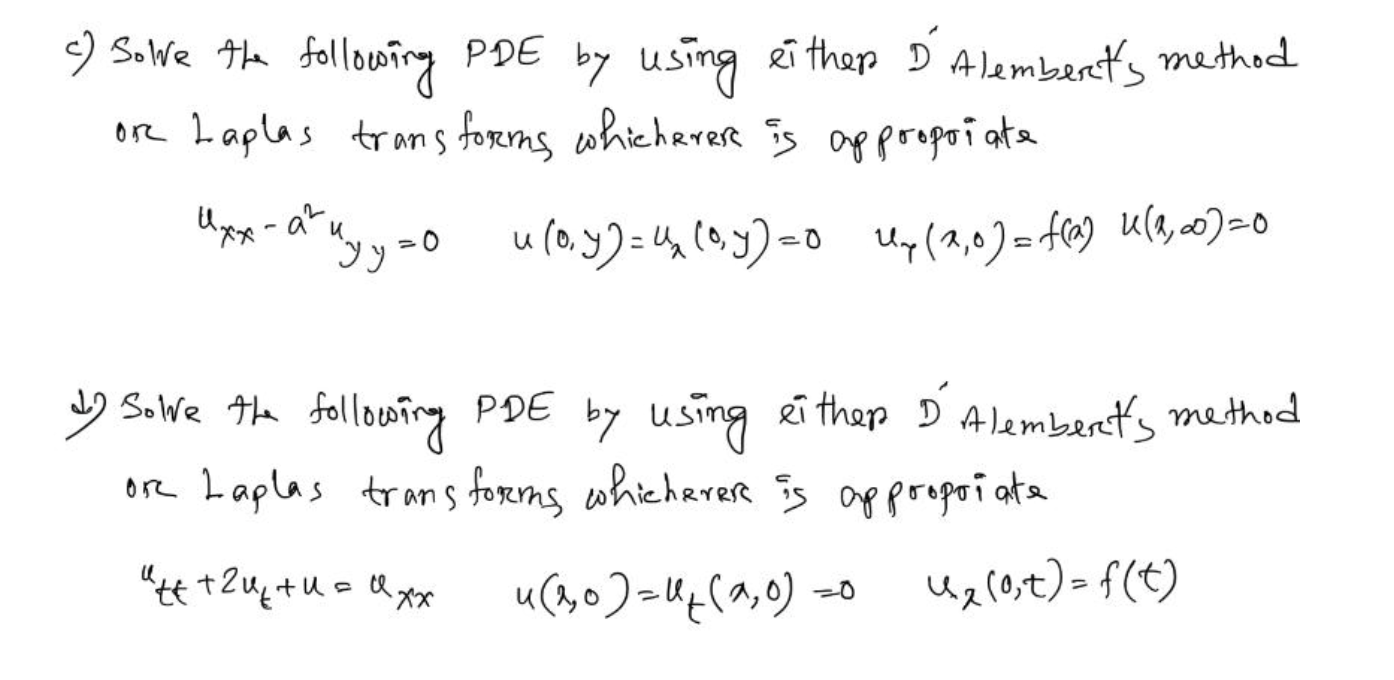 c) Solve the following PDE by using either D'Alembert's method
or Laplas transforms whichever is appropriate
u_xx - a² u_yy = 0 u(0,y) = u_x(0,y) = 0 u_y(x,0) = f(x) u(x,∞) = 0
d) Solve the following PDE by using either D'Alembert's method
or Laplas transforms whichever is appropriate
u_tt + 2u_t + u = u_xx u(x,0) = u_t(x,0) = 0 u_x(0,t) = f(t)